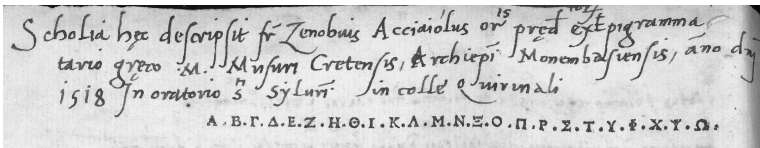 Scholia hęc descripsit fr̄ Zenobius Acciaiolus orⁱˢ pręd̄ ex Epigramma
tario gręco .M. Musuri Cretensis, Archiepī Monembasiensis, āno dnj
1518 In oratorio S Syluri in colle Quirinali
Α . Β . Γ . Δ . Ε . Ζ . Η . Θ . Ι . Κ . Λ . Μ . Ν . Ξ . Ο . Π . Ρ . Σ . Τ . Υ . Φ . Χ . Ψ . Ω .